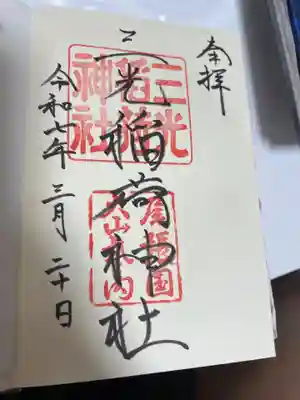 奉拝
三光稲荷神社
三光稲荷神社
尾張国犬山城内
令和七年 三月 二十日